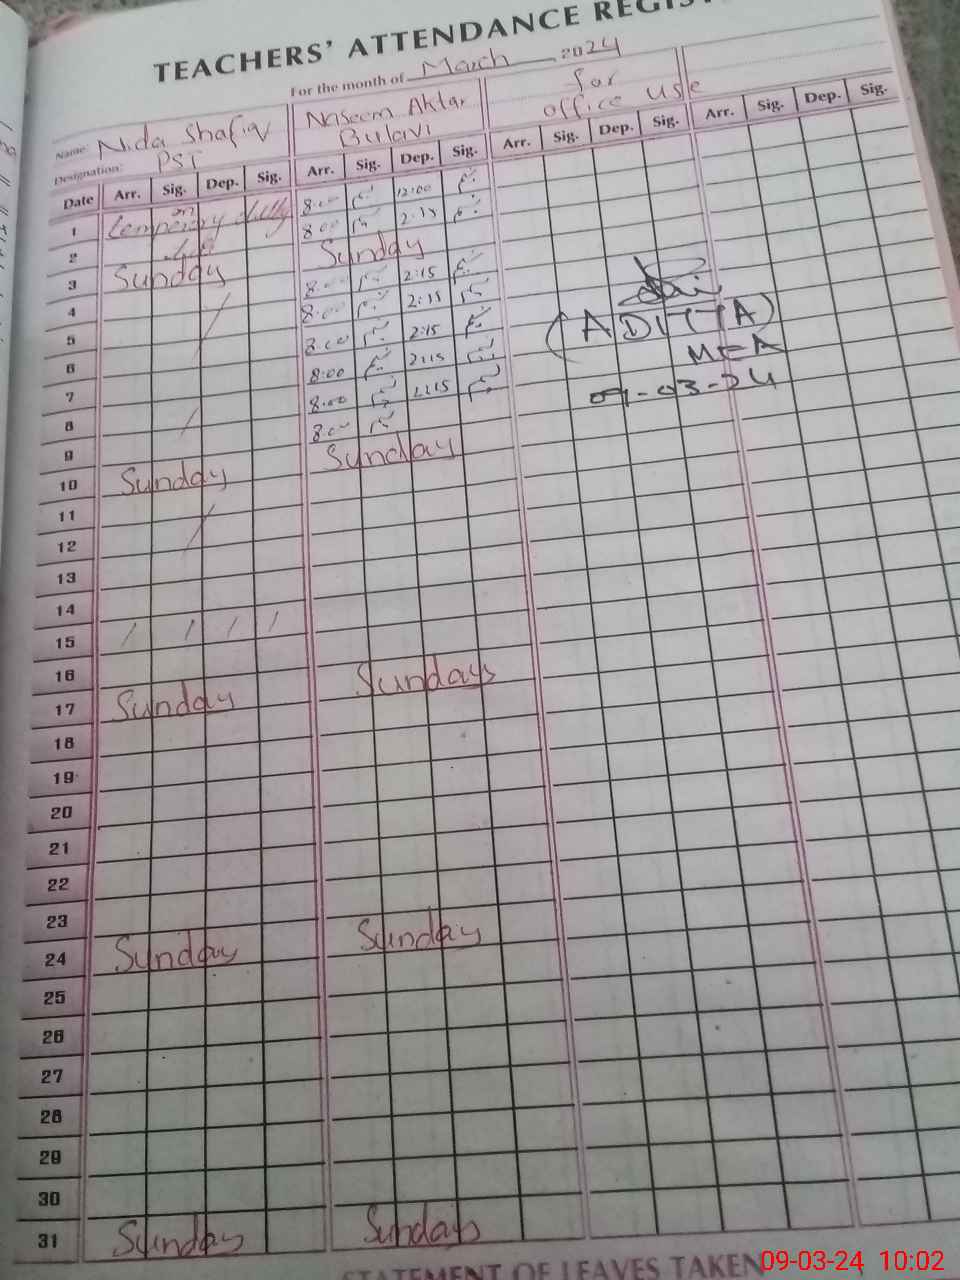 TEACHERS' ATTENDANCE REGIS
For the month of March 2024
Name: Nida Shafiq
Naseem Aktar
for
Designation: PST
Bulavi
office use
Date Arr. Sig. Dep. Sig. Arr. Sig. Dep. Sig. Arr. Sig. Dep. Sig. Arr. Sig. Dep. Sig.
1 8:00 12:00
2 8:00 2:15
3 Sunday Sunday
4 8:00 2:15
5 8:00 2:15
6 8:00 2:15
7 8:00 2:15
8 8:00 2:15
9 8:00
10 Sunday Sunday
11
12
13
14
15
16
17 Sunday Sunday
18
19
20
21
22
23
24 Sunday Sunday
25
26
27
28
29
30
31 Sunday Sunday
(ADITTA)
MEA
09-03-24
STATEMENT OF LEAVES TAKEN
09-03-24 10:02